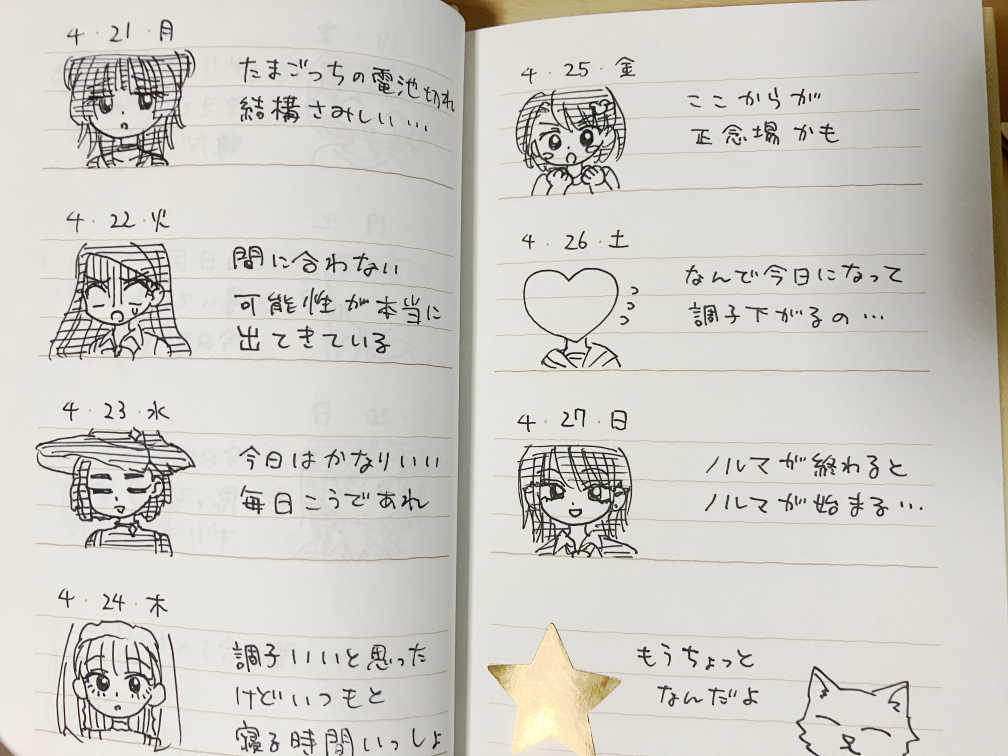 4・21・月
たまごっちの電池切れ
結構さみしい…
4・22・火
間に合わない
可能性が本当に
出てきている
4・23・水
今日はかなりいい
毎日こうであれ
4・24・木
調子いいと思った
けどいつもと
寝る時間いっしょ
4・25・金
ここからが
正念場かも
4・26・土
なんで今日になって
調子下がるの…
4・27・日
ノルマが終わると
ノルマが始まる…
もうちょっと
なんだよ